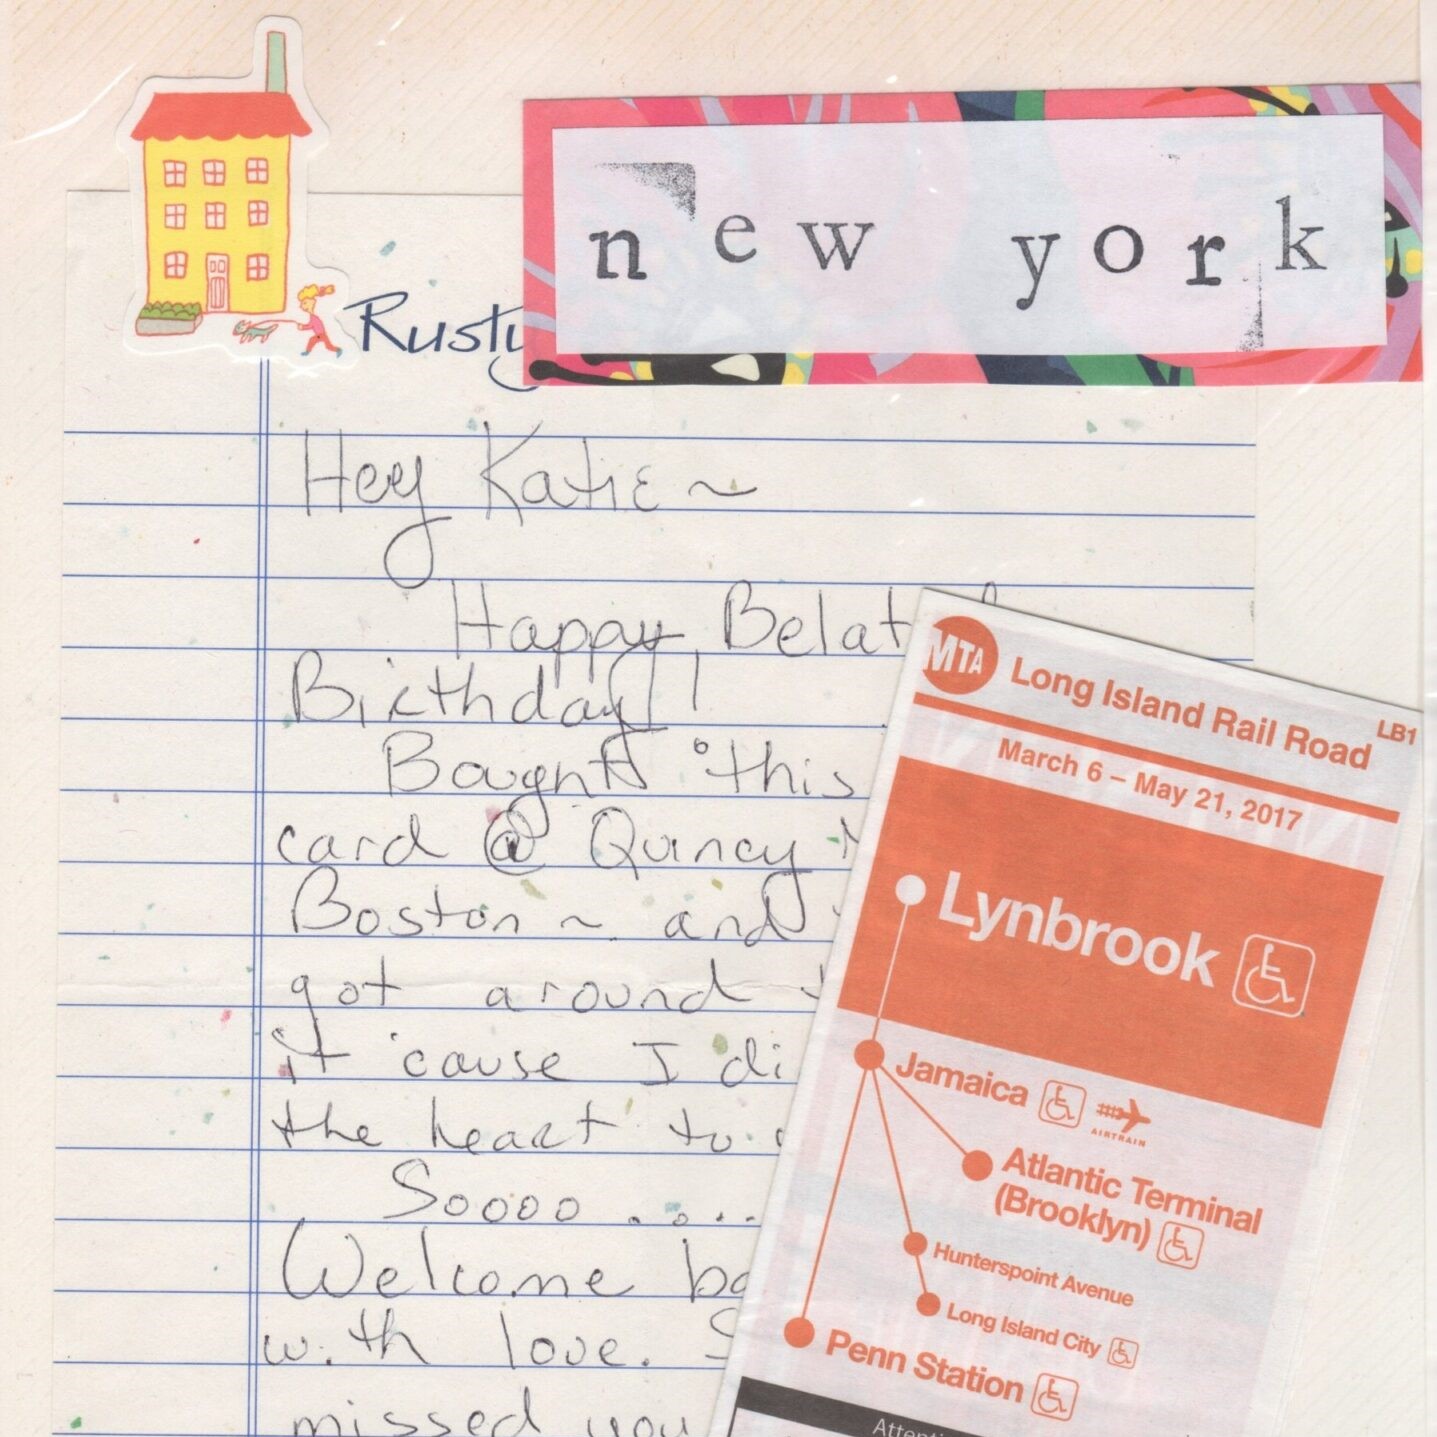 new york
Rusty
Hey Katie ~
Happy Belat
Birthday!
Bought this
card @ Quincy
Boston ~ and
got around
it 'cause I di
the heart to
Soooo ....
Welcome ba
with love. S
missed you
MTA Long Island Rail Road
LB1
March 6 – May 21, 2017
Lynbrook
Jamaica
AIRTRAIN
Atlantic Terminal
(Brooklyn)
Hunterspoint Avenue
Long Island City
Penn Station
Attenti